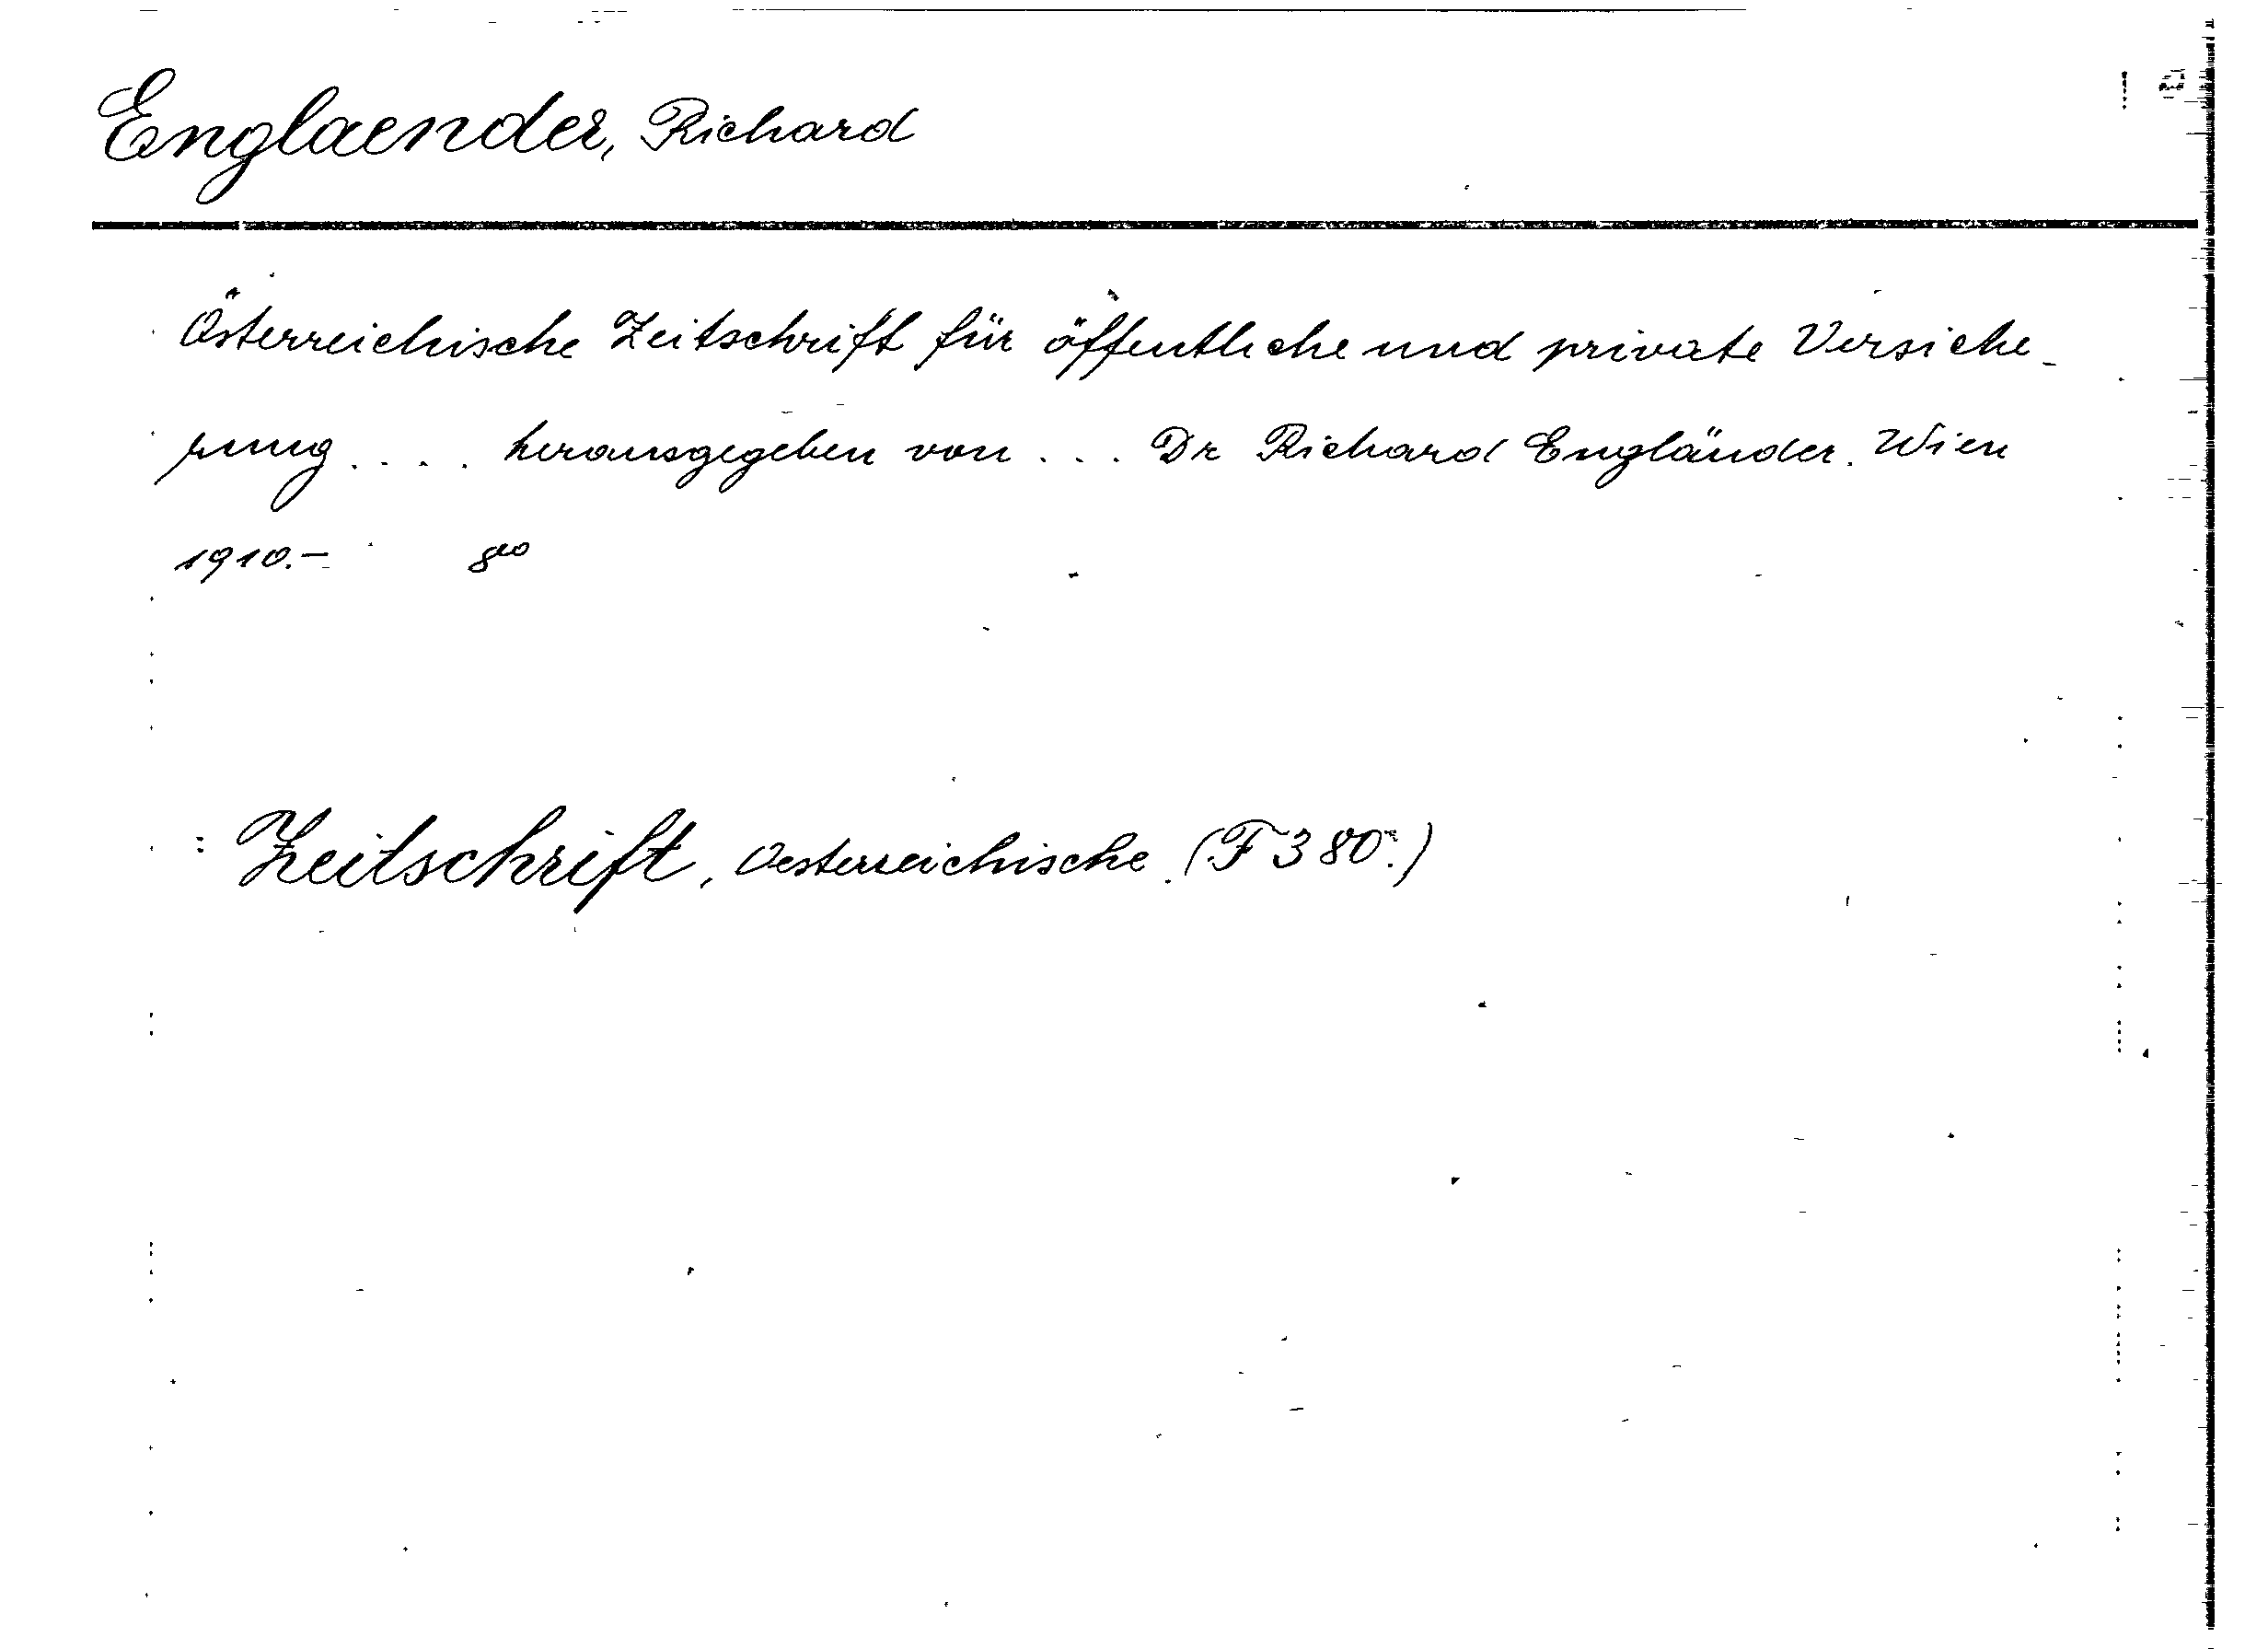 Englaender, Richard
Österreichische Zeitschrift für öffentliche und private Versiche-
rung .... herausgegeben von ... Dr Richard Engländer. Wien
1910.- 8vo
: Zeitschrift, Oesterreichische. (F 380.)